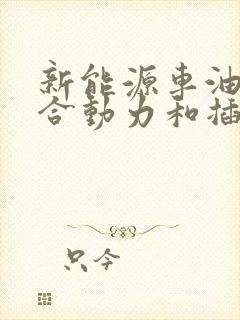 新能源車油
合動力和插
只今